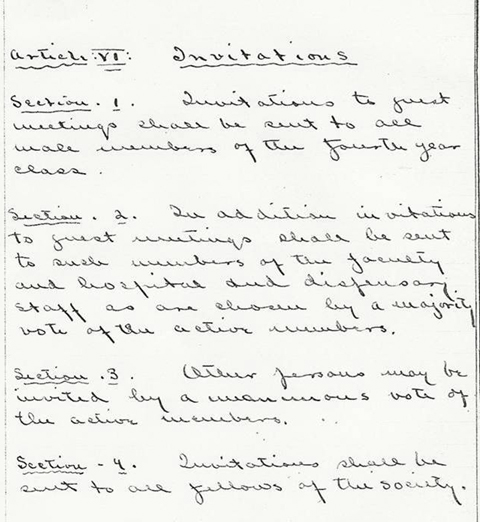 Article: VI: Invitations
Section. 1. Invitations to guest
meetings shall be sent to all
male members of the fourth year
class.
Section. 2. In addition invitations
to guest meetings shall be sent
to such members of the faculty
and hospital and dispensary
staff as are chosen by a majority
vote of the active members.
Section. 3. Other persons may be
invited by a unanimous vote of
the active members.
Section - 4. Invitations shall be
sent to all fellows of the society.